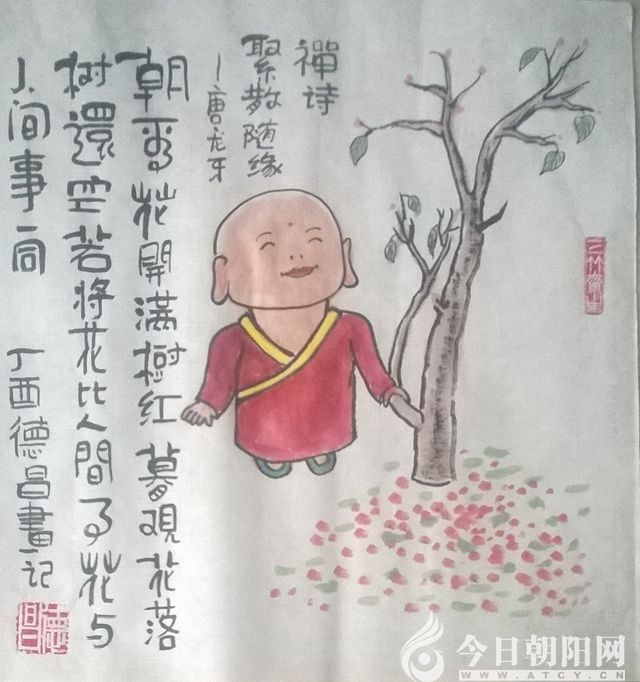 禪诗
聚散随缘
—唐龙牙
朝看花開满樹红暮观花落
树還空若将花比人間事花与
人间事一同
丁酉德昌畫记
德昌
今日朝阳网
WWW.ATCY.CN